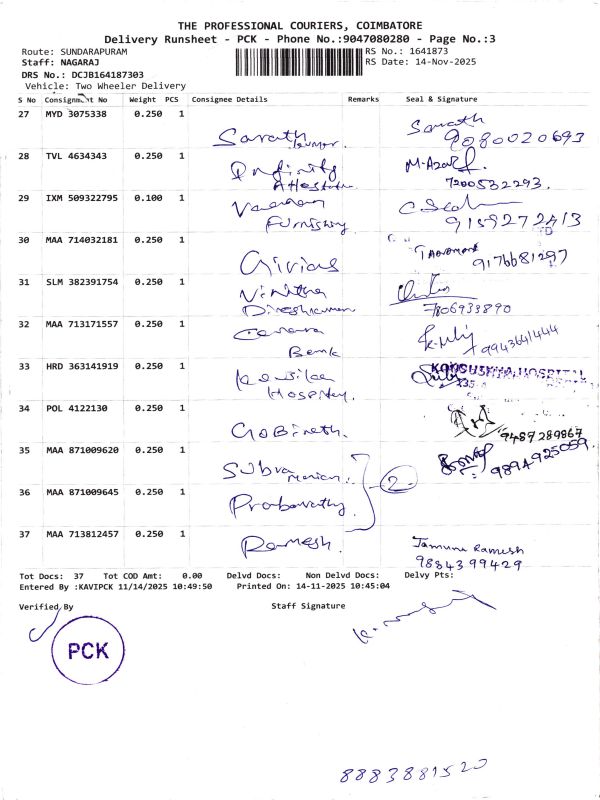 THE PROFESSIONAL COURIERS, COIMBATORE
Delivery Runsheet - PCK - Phone No.:9047080280 - Page No.:3
Route: SUNDARAPURAM RS No.: 1641873
Staff: NAGARAJ RS Date: 14-Nov-2025
DRS No.: DCJB164187303
Vehicle: Two Wheeler Delivery
S No Consignment No Weight PCS Consignee Details Remarks Seal & Signature
27 MYD 3075338 0.250 1 Sarath kumar. Sarath
9080020693
28 TVL 4634343 0.250 1 Infinity
7200532293.
29 IXM 509322795 0.100 1
Furnishing 9159272413
30 MAA 714032181 0.250 1
9176681297
31 SLM 382391754 0.250 1 Vinitha
7806933890
32 MAA 713171557 0.250 1 Canara
Bank 9943641444
33 HRD 363141919 0.250 1 HOSPITAL
Hospital
34 POL 4122130 0.250 1 Gobinath.
9487289867
35 MAA 871009620 0.250 1 Subra manian.
9894925059.
2
36 MAA 871009645 0.250 1 Prabavathy
37 MAA 713812457 0.250 1 Ramesh. Jamuna Ramesh
9884399429
Tot Docs: 37 Tot COD Amt: 0.00 Delvd Docs: Non Delvd Docs: Delvy Pts:
Entered By :KAVIPCK 11/14/2025 10:49:50 Printed On: 14-11-2025 10:45:04
Verified By Staff Signature
PCK
8883881520